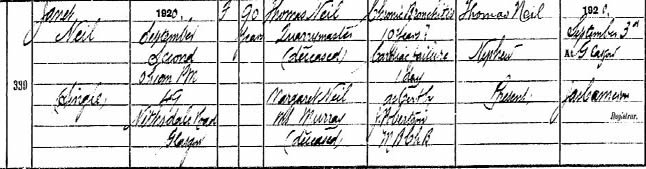 339
Janet
Neil
(Single)
1920
September
Second
0 hours PM
49
Nithsdale Road
Glasgow
F
90
years
Thomas Neil
Quarrymaster
(deceased)
Margaret Neil
M.S. Murray
(deceased)
Chronic Bronchitis
10 Years
Cardiac failure
1 day
As Cert by
J Robertson
M B Ch B
Thomas Neil
Nephew
Present
1920,
September 3rd
At Glasgow
Cameron
Registrar.